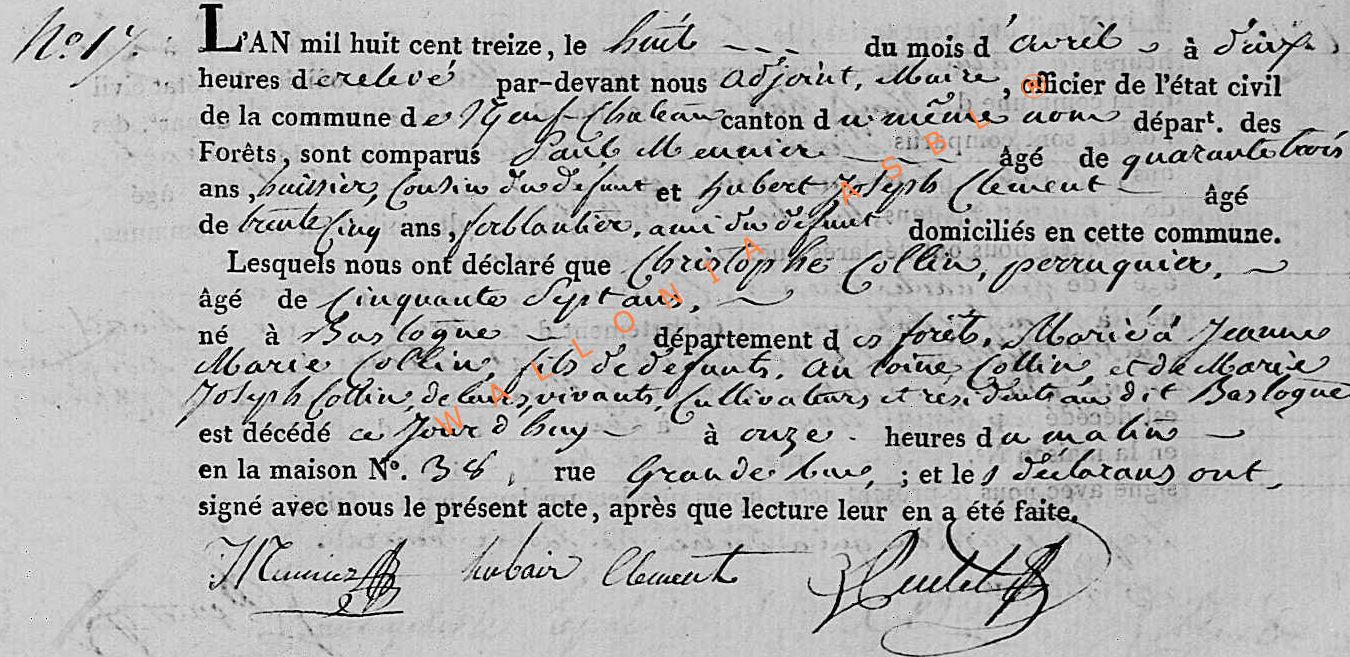 No. 17. L'AN mil huit cent treize, le huit --- du mois d'avril à deux
heures de relevé par-devant nous adjoint, Maire, officier de l'état civil
de la commune de Neuf-Chateau canton du même nom départ. des
Forêts, sont comparus Paul Meunier âgé de quarante trois
ans, huissier, Cousin du défunt et hubert Joseph Clement âgé
de trente Cinq ans, ferblantier, ami du défunt domiciliés en cette commune.
Lesquels nous ont déclaré que Christophe Collin, perruquier,
âgé de Cinquante Sept ans,
né à Bastogne département des forêts, Marié à Jeanne
Marie Collin, fils de défunts, antoine Collin, et de Marie
Joseph Collin, de leurs vivants, Cultivateurs et résidents au dit Bastogne
est décédé ce Jour d'huy à onze heures du matin
en la maison No. 38, rue Grande rue, ; et les déclarans ont
signé avec nous le présent acte, après que lecture leur en a été faite.
Meunier hubair Clement
WALLONIA ASBL ®